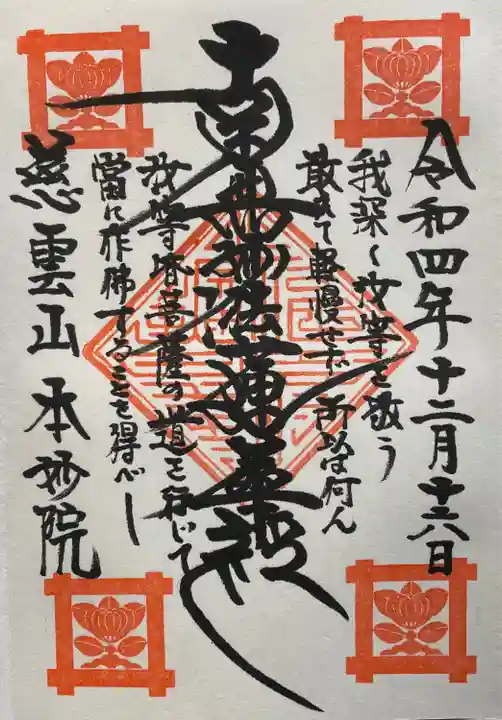 令和四年十二月十六日
我深く汝等を敬う
敢えて軽慢せず所以は何ん
南無妙法蓮華経
汝等皆菩薩の道を行じて
當に作佛することを得べし
慈雲山本妙院